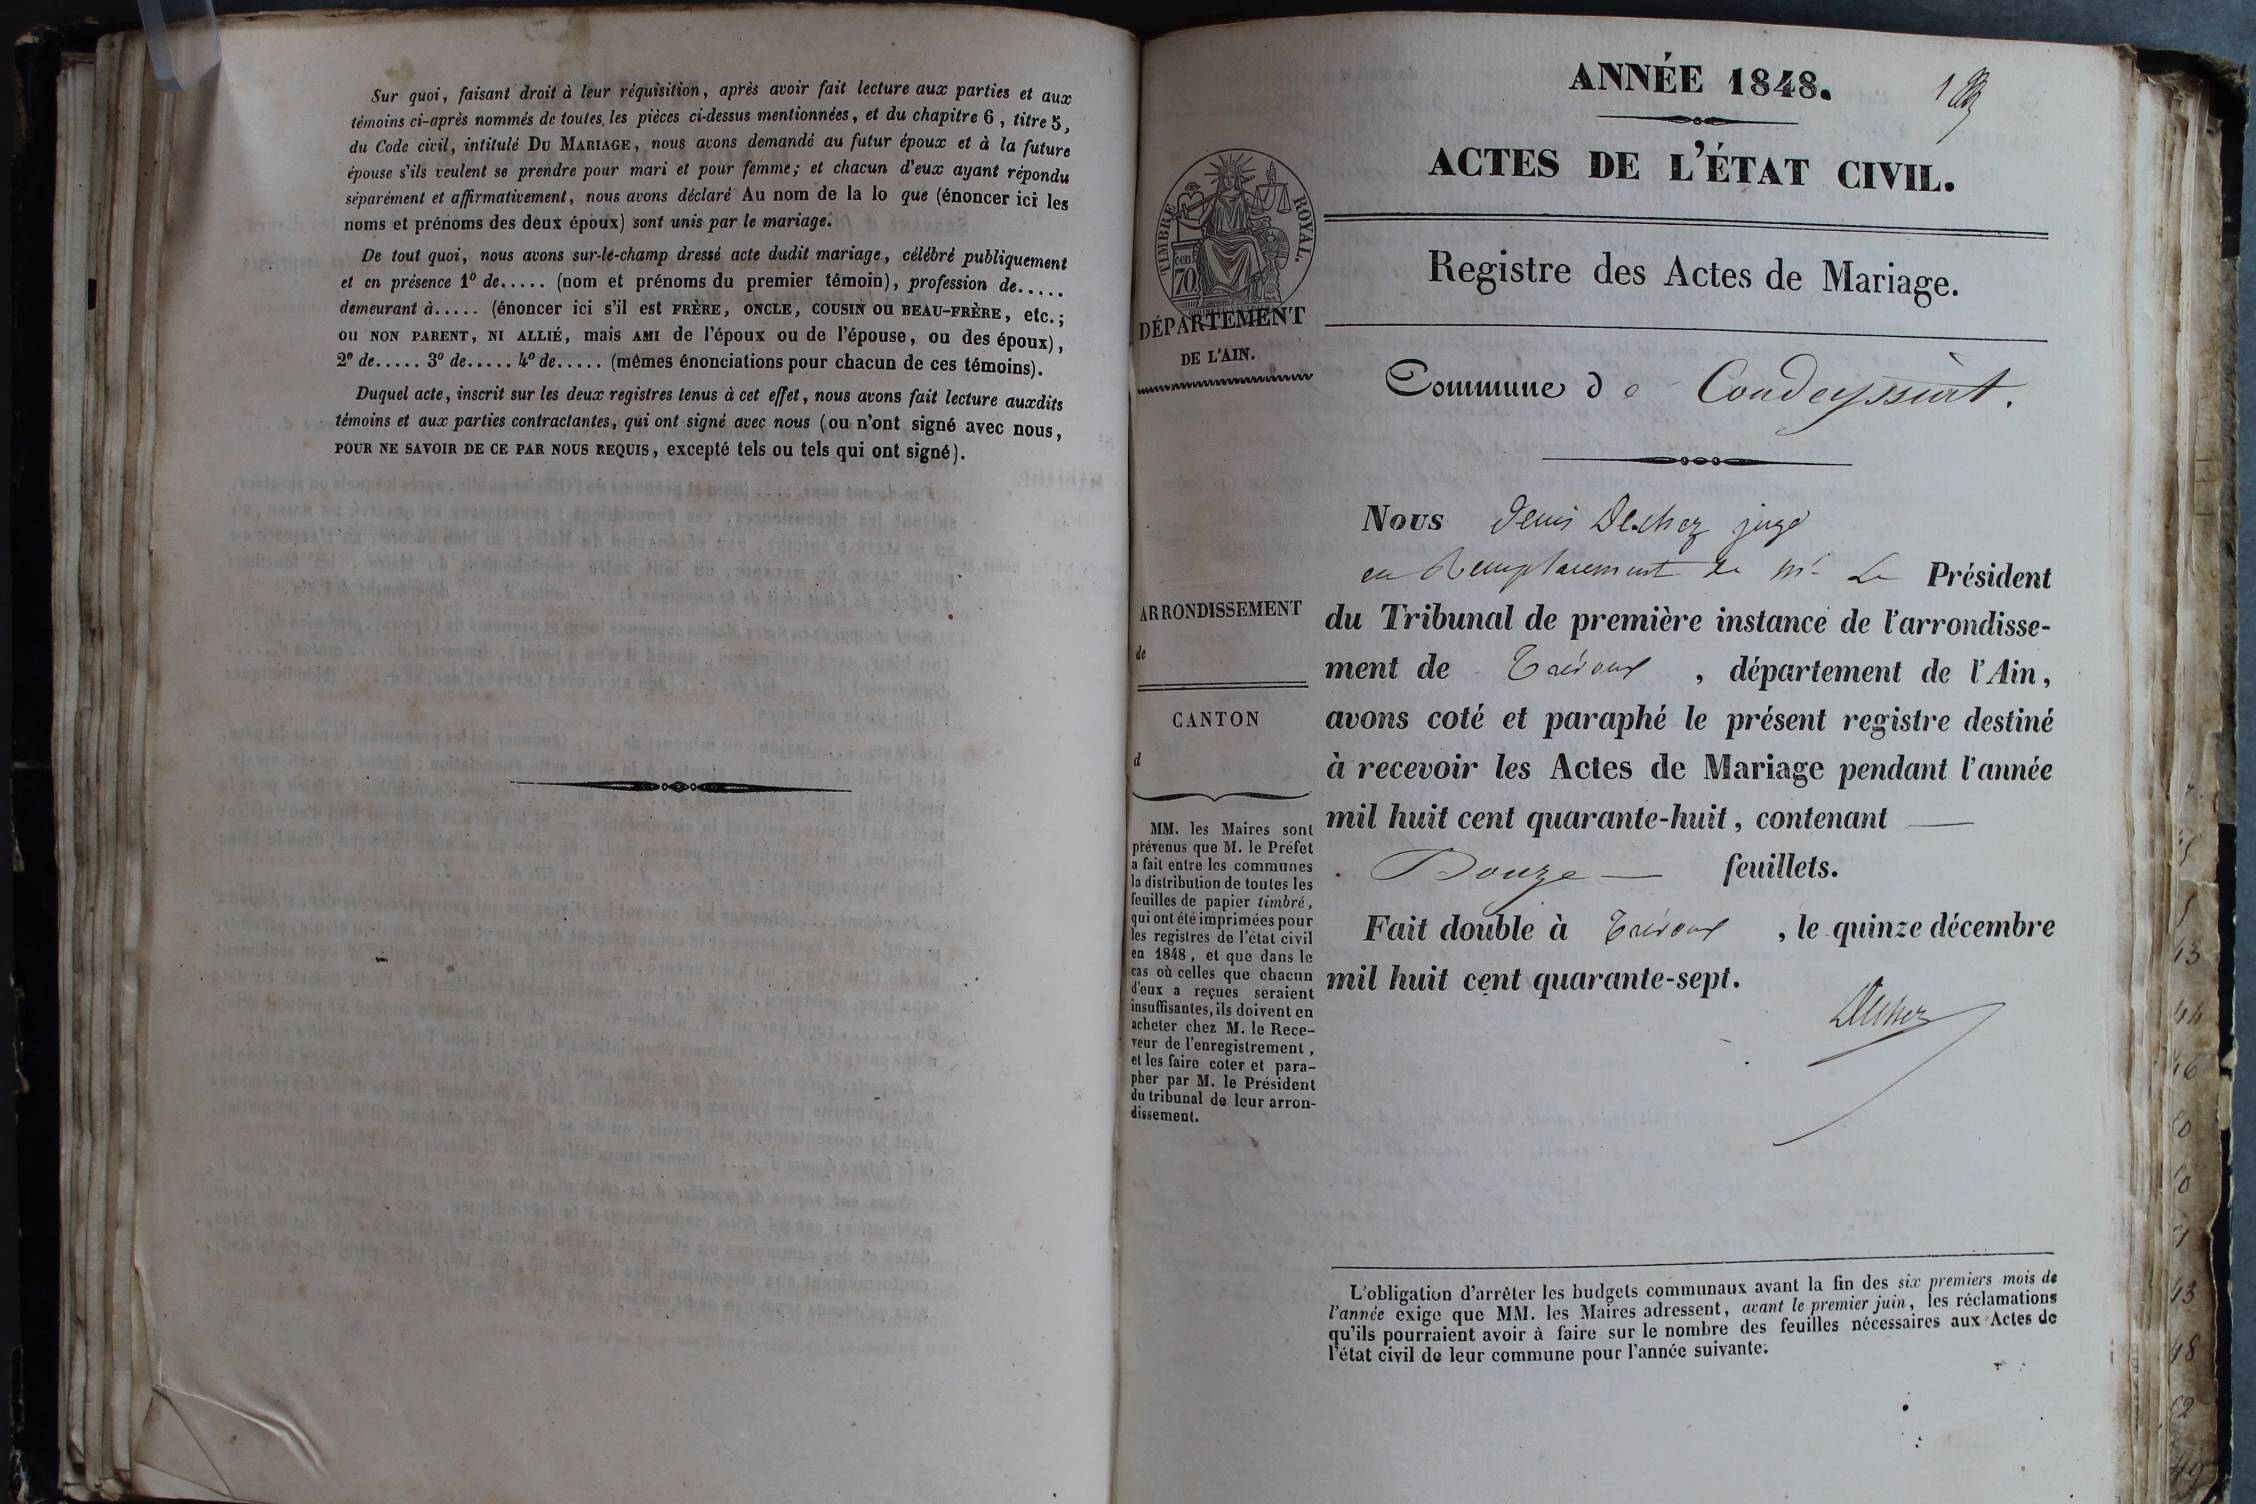 Sur quoi, faisant droit à leur réquisition, après avoir fait lecture aux parties et aux
témoins ci-après nommés de toutes les pièces ci-dessus mentionnées, et du chapitre 6, titre 5,
du Code civil, intitulé DU MARIAGE, nous avons demandé au futur époux et à la future
épouse s'ils veulent se prendre pour mari et pour femme; et chacun d'eux ayant répondu
séparément et affirmativement, nous avons déclaré Au nom de la lo que (énoncer ici les
noms et prénoms des deux époux) sont unis par le mariage.
De tout quoi, nous avons sur-le-champ dressé acte dudit mariage, célébré publiquement
et en présence 1º de..... (nom et prénoms du premier témoin), profession de.....
demeurant à..... (énoncer ici s'il est FRÈRE, ONCLE, COUSIN OU BEAU-FRÈRE, etc.;
ou NON PARENT, NI ALLIÉ, mais AMI de l'époux ou de l'épouse, ou des époux),
2º de..... 3º de..... 4º de..... (mêmes énonciations pour chacun de ces témoins).
Duquel acte, inscrit sur les deux registres tenus à cet effet, nous avons fait lecture auxdits
témoins et aux parties contractantes, qui ont signé avec nous (ou n'ont signé avec nous,
POUR NE SAVOIR DE CE PAR NOUS REQUIS, excepté tels ou tels qui ont signé).
ANNÉE 1848.
1
ACTES DE L'ÉTAT CIVIL.
TIMBRE ROYAL.
70 cen
DÉPARTEMENT
DE L'AIN.
Registre des Actes de Mariage.
Commune de Condeyssiat.
ARRONDISSEMENT
de
CANTON
d
MM. les Maires sont
prévenus que M. le Préfet
a fait entre les communes
la distribution de toutes les
feuilles de papier timbré,
qui ont été imprimées pour
les registres de l'état civil
en 1848, et que dans le
cas où celles que chacun
d'eux a reçues seraient
insuffisantes, ils doivent en
acheter chez M. le Rece-
veur de l'enregistrement,
et les faire coter et para-
pher par M. le Président
du tribunal de leur arron-
dissement.
Nous Denis Dechez juge
en Remplacement de Mr Le Président
du Tribunal de première instance de l'arrondisse-
ment de Trévoux, département de l'Ain,
avons coté et paraphé le présent registre destiné
à recevoir les Actes de Mariage pendant l'année
mil huit cent quarante-huit, contenant —
Douze — feuillets.
Fait double à Trévoux, le quinze décembre
mil huit cent quarante-sept.
Dechez
L'obligation d'arrêter les budgets communaux avant la fin des six premiers mois de
l'année exige que MM. les Maires adressent, avant le premier juin, les réclamations
qu'ils pourraient avoir à faire sur le nombre des feuilles nécessaires aux Actes de
l'état civil de leur commune pour l'année suivante.